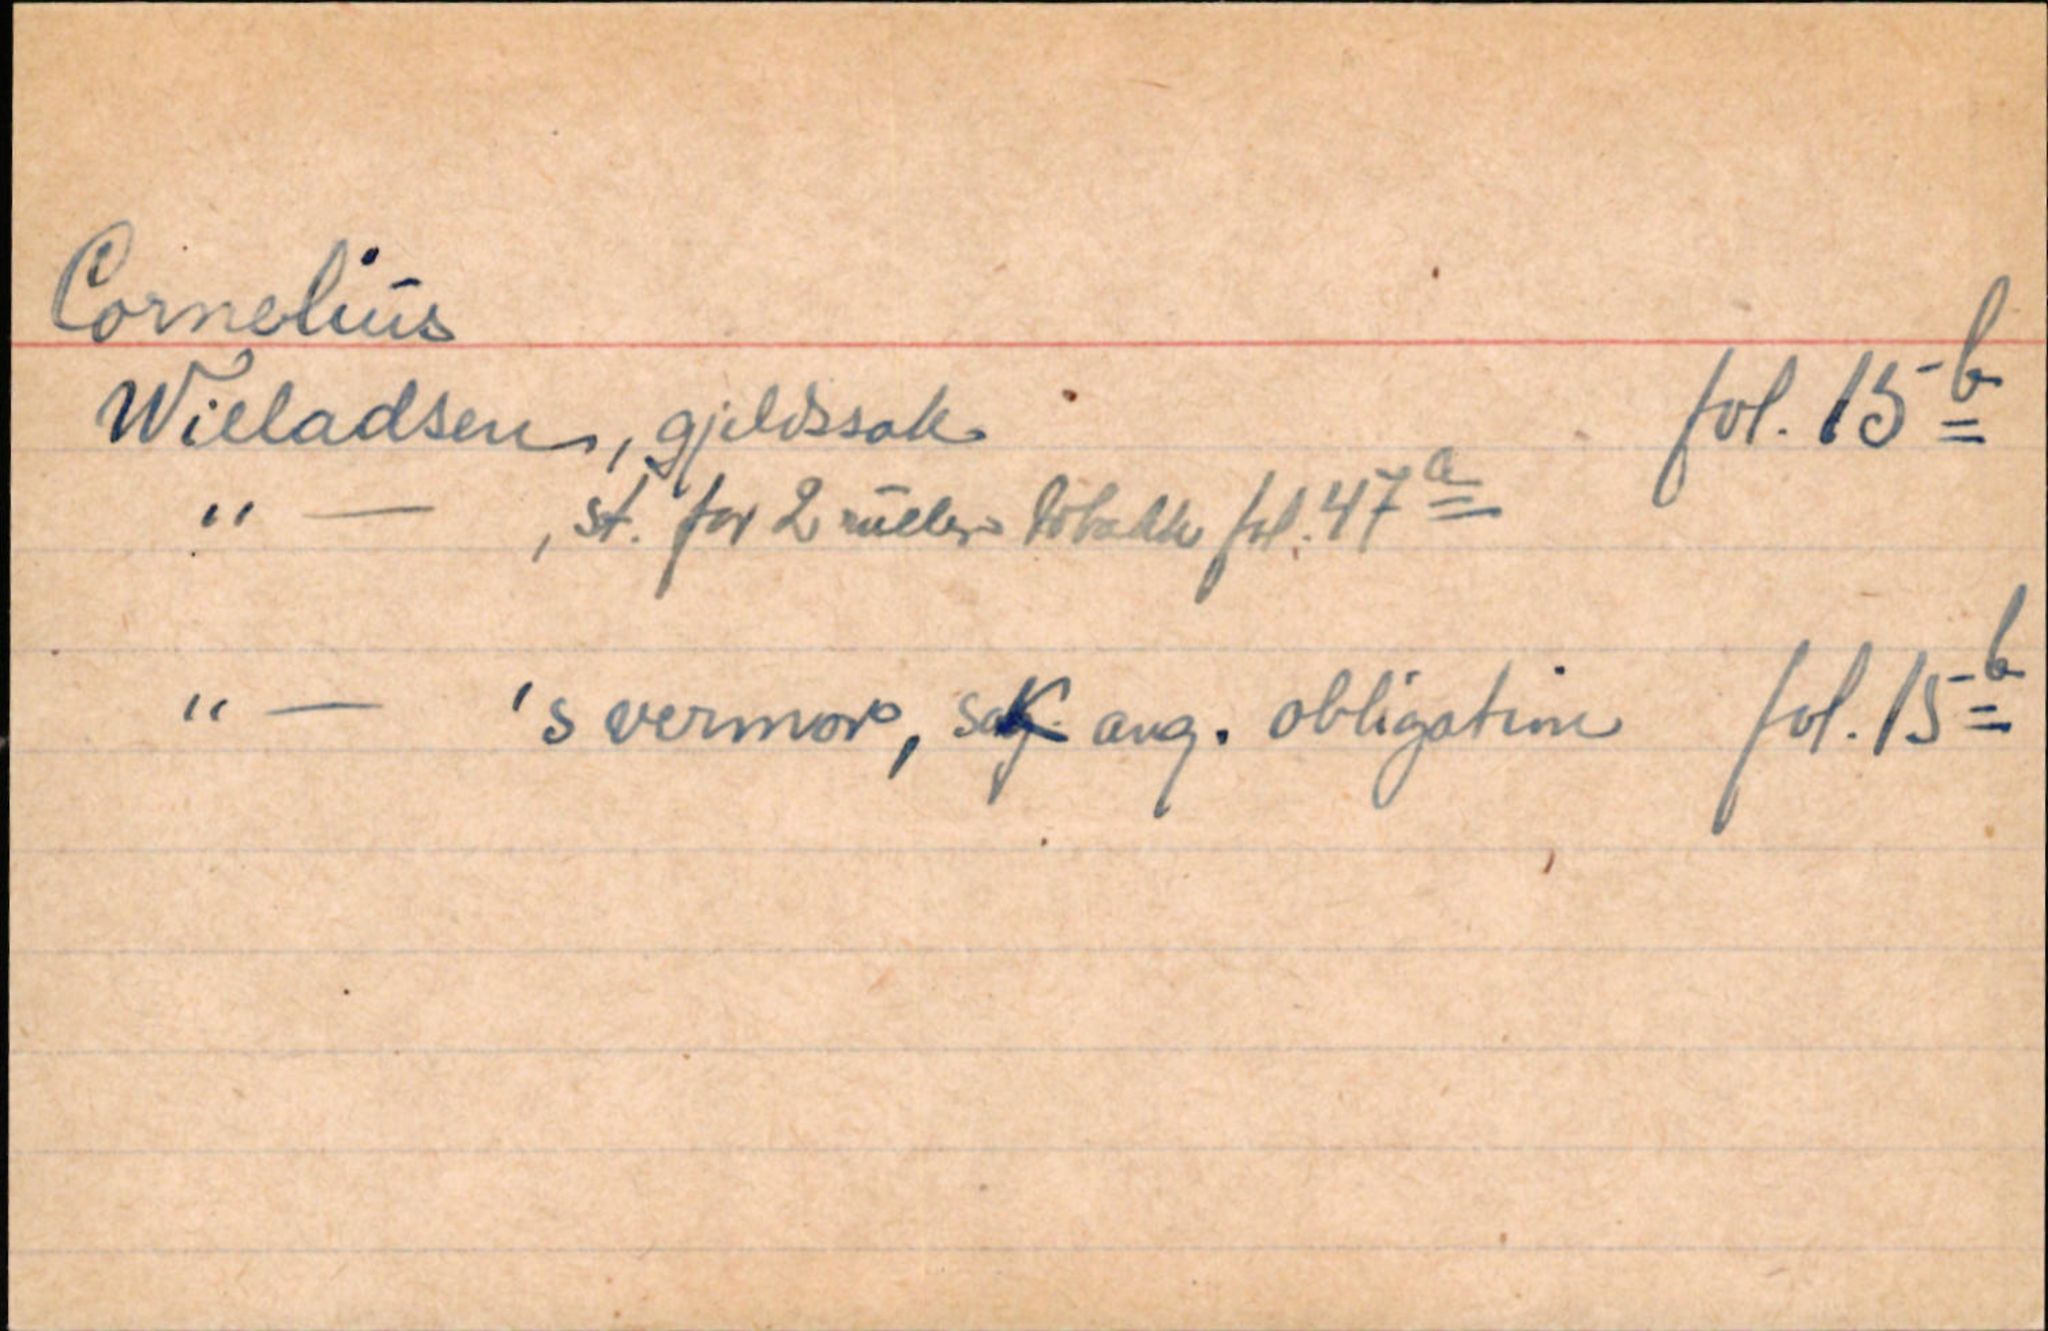 Cornelius
Willadsen, gjeldssak fol. 15 b
" — , st. for 2 ruller tobakk fol. 47 a
" — 's vermor, sak ang. obligation fol. 15 b